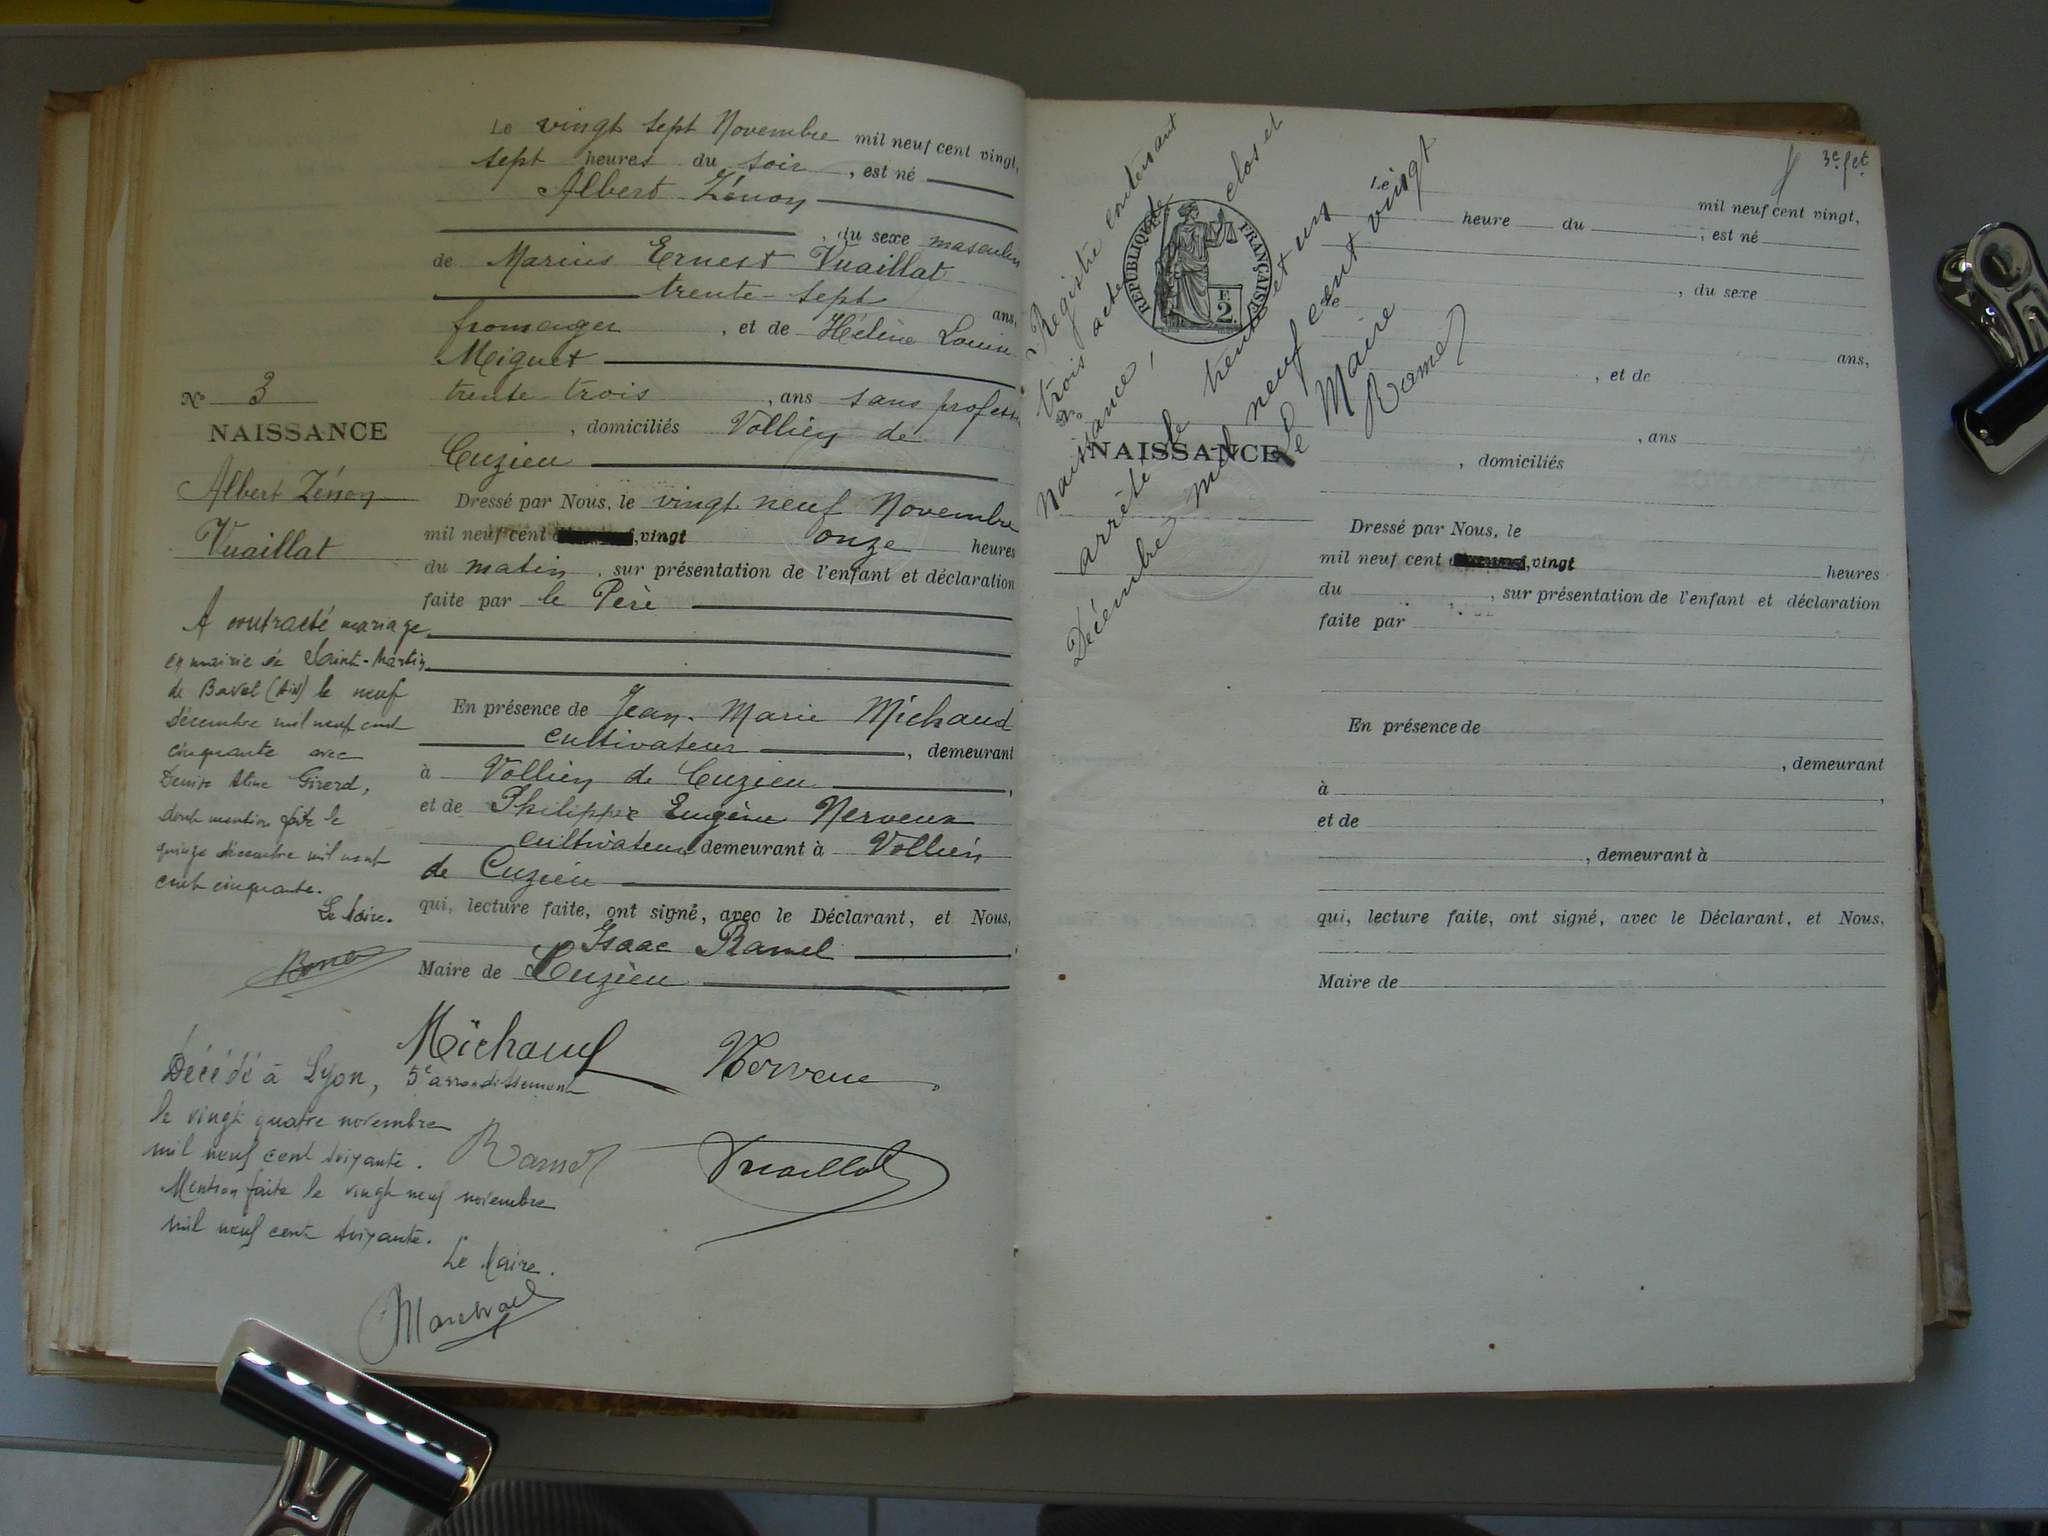 Le vingt sept Novembre mil neuf cent vingt,
sept heures du soir, est né
Albert Zénon
, du sexe masculin
de Marius Ernest Vuaillat
trente-sept ans,
fromager, et de Hélène Louise
Miguet
trente trois, ans sans profess
, domiciliés Vollien de
Cuzieu
Nº 3
NAISSANCE
Albert Zénon
Vuaillat
Dressé par Nous, le vingt neuf Novembre
mil neuf cent ,vingt onze heures
du matin, sur présentation de l'enfant et déclaration
faite par le Père
En présence de Jean-Marie Michaud
cultivateur, demeurant
à Vollien de Cuzieu,
et de Philippe Eugène Nerveux
cultivateur, demeurant à Vollien
de Cuzieu
qui, lecture faite, ont signé, avec le Déclarant, et Nous,
Isaac Ramel
Maire de Cuzieu
A contracté mariage
en mairie de Saint-Martin
de Bavel (Ain) le neuf
décembre mil neuf cent
cinquante avec
Denise Aline Girerd,
dont mention faite le
quinze décembre mil neuf
cent cinquante.
Le Maire.
Michaud
Nerveux
Décédé à Lyon, 5e arrondissement
le vingt quatre novembre
mil neuf cent soixante.
Ramel
Vuaillat
Mention faite le vingt neuf novembre
mil neuf cent soixante.
Le Maire.
3e fet
Registre contenant
trois actes de
naissance, clos et
arrêté le trente et un
Décembre mil neuf cent vingt
Le Maire
Ramel
RÉPUBLIQUE FRANÇAISE
E
2
Nº
NAISSANCE
Le
mil neuf cent vingt,
heure du , est né
, du sexe
de
ans,
, et de
, ans
, domiciliés
Dressé par Nous, le
mil neuf cent ,vingt heures
du , sur présentation de l'enfant et déclaration
faite par
En présence de
, demeurant
à ,
et de
, demeurant à
qui, lecture faite, ont signé, avec le Déclarant, et Nous,
Maire de